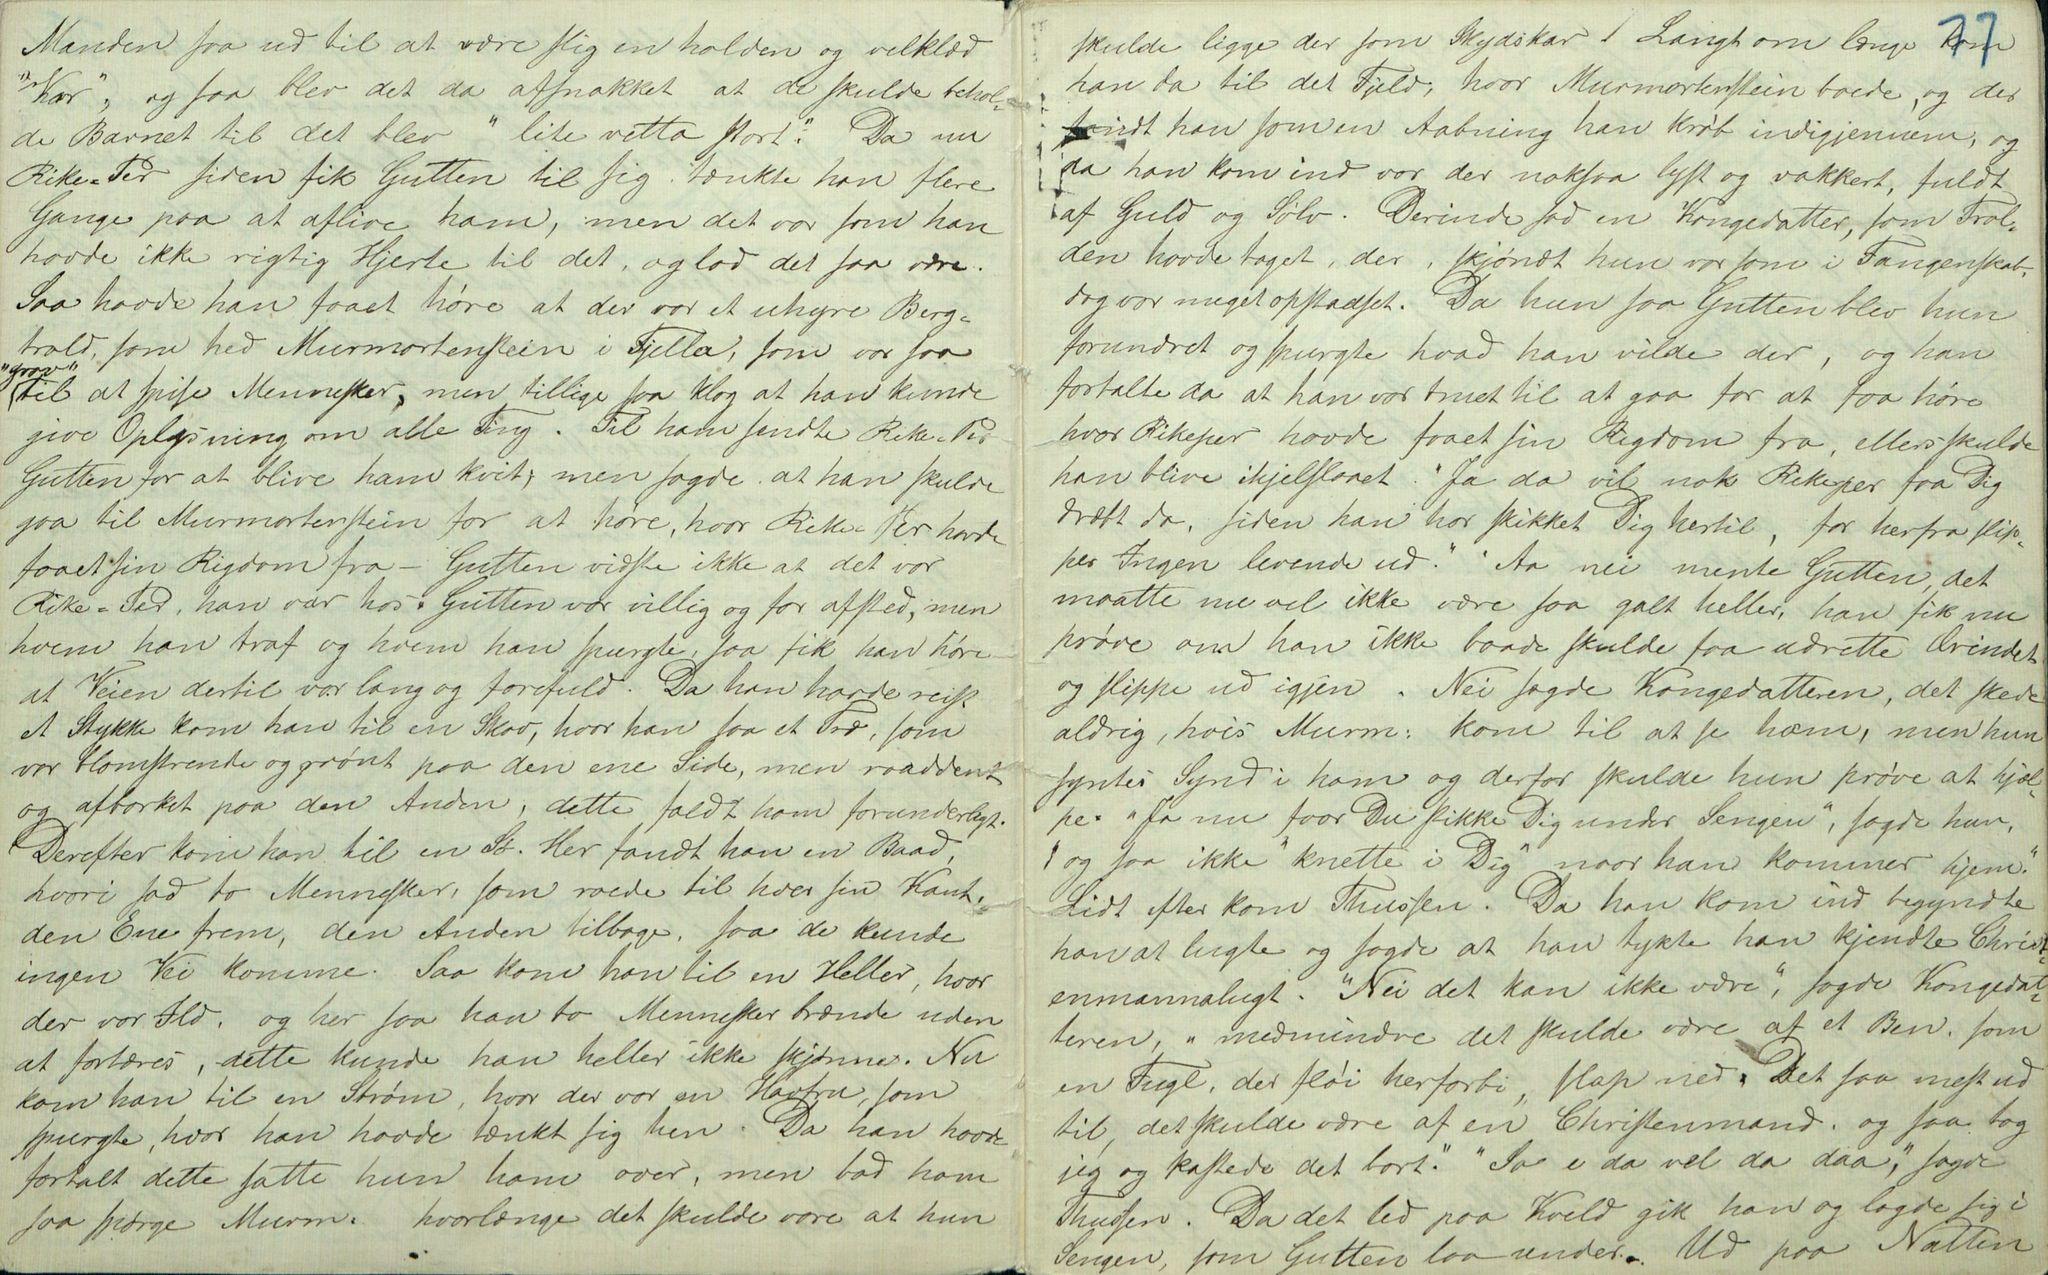 Manden saa ud til at være slig en holden og velklæd
"Kar", og saa blev det da afsnakket at de skulde behol-
de Barnet til det blev "lite vetta stort". Da nu
Rike-Per siden fik Gutten til sig tænkte han flere
Gange paa at aflive ham, men det var som han
havde ikke rigtig Hjerte til det, og lod det saa være.
Saa havde han faaet høre at der var et uhyre Berg-
trold, som hed Murmortenstein i Fjella, som var saa
"grov"
til at spise Mennesker, men tillige saa klog at han kunde
give Oplysning om alle Ting. Til ham sendte Rike-Per
Gutten for at blive ham kvit; men sagde at han skulde
gaa til Murmortenstein for at høre, hvor Rike-Per havde
faaet sin Rigdom fra – Gutten vidste ikke at det var
Rike-Per, han var hos. Gutten var villig og for afsted, men
hvem han traf og hvem han spurgte, saa fik han høre
at Veien dertil var lang og farefuld. Da han havde reist
et Stykke kom han til en Skov, hvor han saa et Træ, som
var blomstrende og grønt paa den ene Side, men raaddent
og afbarket paa den Anden, dette faldt ham forunderligt.
Derefter kom han til en Sø. Her fandt han en Baad,
hvori sad to Mennesker, som roede til hver sin Kant,
den Ene frem, den Anden tilbage, saa de kunde
ingen Vei komme. Saa kom han til en Heller, hvor
der var Ild, og her saa han to Mennesker brænde uden
at fortæres, dette kunde han heller ikke skjønne. Nu
kom han til en Strøm, hvor der var en Havfru, som
spurgte, hvor han havde tænkt sig hen. Da han havde
fortalt dette satte hun ham over, men bad ham
saa spørge Murm. hvorlænge det skulde vare at hun
77
skulde ligge der som Skydskar. Langt om længe kom
han da til det Fjeld, hvor Murmortenstein boede, og der
fandt han som en Aabning han krøb indigjennem, og
da han kom ind var der noksaa lyst og vakkert, fuldt
af Guld og Sølv. Derinde sad en Kongedatter, som Trol-
den havde taget, der, skjøndt hun var som i Fangenskab,
dog var meget opstadset. Da hun saa Gutten blev hun
forundret og spurgte hvad han vilde der, og han
fortalte da at han var truet til at gaa for at faa høre
hvor Rikeper havde faaet sin Rigdom fra, ellers skulde
han blive ihjelslaaet. "Ja da vil nok Rikeper faa Dig
dræbt da, siden han har skikket Dig hertil, for herfra slip-
per Ingen levende ud." "Aa nei mente Gutten, det
maatte nu vel ikke være saa galt heller, han fik nu
prøve om han ikke baade skulde faa udrette Ærindet
og slippe ud igjen. Nei sagde Kongedatteren, det skede
aldrig, hvis Murm: kom til at se ham, men hun
syntes Synd i ham og derfor skulde hun prøve at hjæl-
pe. "Ja nu faar Du stikke Dig under Sengen", sagde hun,
"og saa ikke "knette i Dig" naar han kommer hjem."
Lidt efter kom Thussen. Da han kom ind begyndte
han at lugte og sagde at han tykte han kjendte Christ-
enmannalugt. "Nei det kan ikke være", sagde Kongedat-
teren, "medmindre det skulde være af et Ben, som
en Fugl, der fløi herforbi, slap ned. Det saa mest ud
til, det skulde være af en Christenmand, og saa tog
jeg og kastede det bort." "Saa e da vel da daa", sagde
Thussen. Da det led paa Kveld gik han og lagde sig i
Sengen, som Gutten laa under. Ud paa Natten